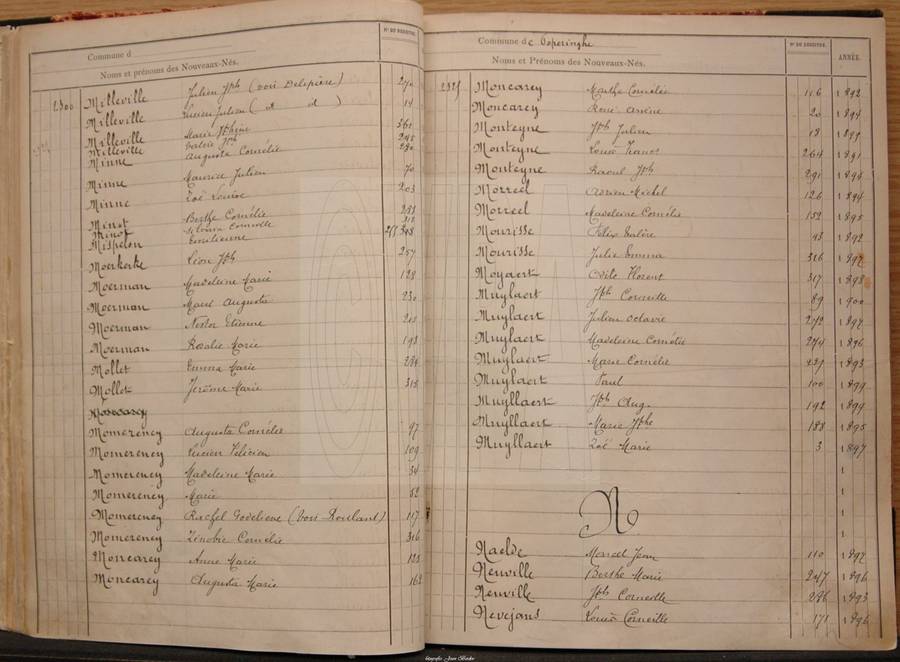 Commune d
Noms et prénoms des Nouveaux-Nés.
N° DU REGISTRE.
2300 Milleville Julien Jph (voir Delepière) 270
Milleville Lucien Julien (d d) 14
Milleville Marie Jphine 361
Milleville Valérie Jph 245
Minne Augusta Cornélie 280
Minne Maurice Julien 70
Minne Zoë Louise 203
Minot Berthe Cornélie 233
Minot Silvain Corneille 312
Mispelon Emilienne 348
Moerkerke Léon Jph 257
Moerman Madeleine Marie 128
Moerman Marie Augusta 230
Moerman Nestor Etienne
Moerman Rosalie Marie 193
Mollet Emma Marie 284
Mollet Jerôme Marie 318
Momereney Augusta Cornélie 97
Momereney Lucien Félicien 109
Momereney Madeleine Marie 34
Momereney Marie 52
Momereney Rachel Godelieve (voir Roelant) 117
Momereney Zénobie Cornélie 316
Moncarey Anne Marie 125
Moncarey Augusta Marie 162
Commune de Poperinghe
Noms et Prénoms des Nouveaux-Nés.
N° DU REGISTRE.
ANNÉE
2325 Moncarey Marthe Cornélie 116 1892
Moncarey René Arsène 20 1894
Monteyne Jph Julien 18 1899
Monteyne Louis Franc 264 1891
Monteyne Raoul Jph 291 1894
Morreel Adrien Michel 126 1894
Morreel Madeleine Cornélie 152 1895
Mourisse Félix Valère 93 1892
Mourisse Julie Emma 316 1892
Moyaert Odile Florent 317 1898
Muylaert Jph Corneille 89 1900
Muylaert Julien Octavie 272 1892
Muylaert Madeleine Cornélie 274 1896
Muylaert Marie Cornélie 239 1893
Muylaert Paul 100 1899
Muyllaert Jph Aug. 192 1899
Muyllaert Marie Jphe 188 1895
Muyllaert Zoë Marie 3 1897
N
Naelde Marcel Jean 110 1892
Neuville Berthe Marie 247 1896
Neuville Jph Corneille 286 1893
Nevejans Louis Corneille 171 1896